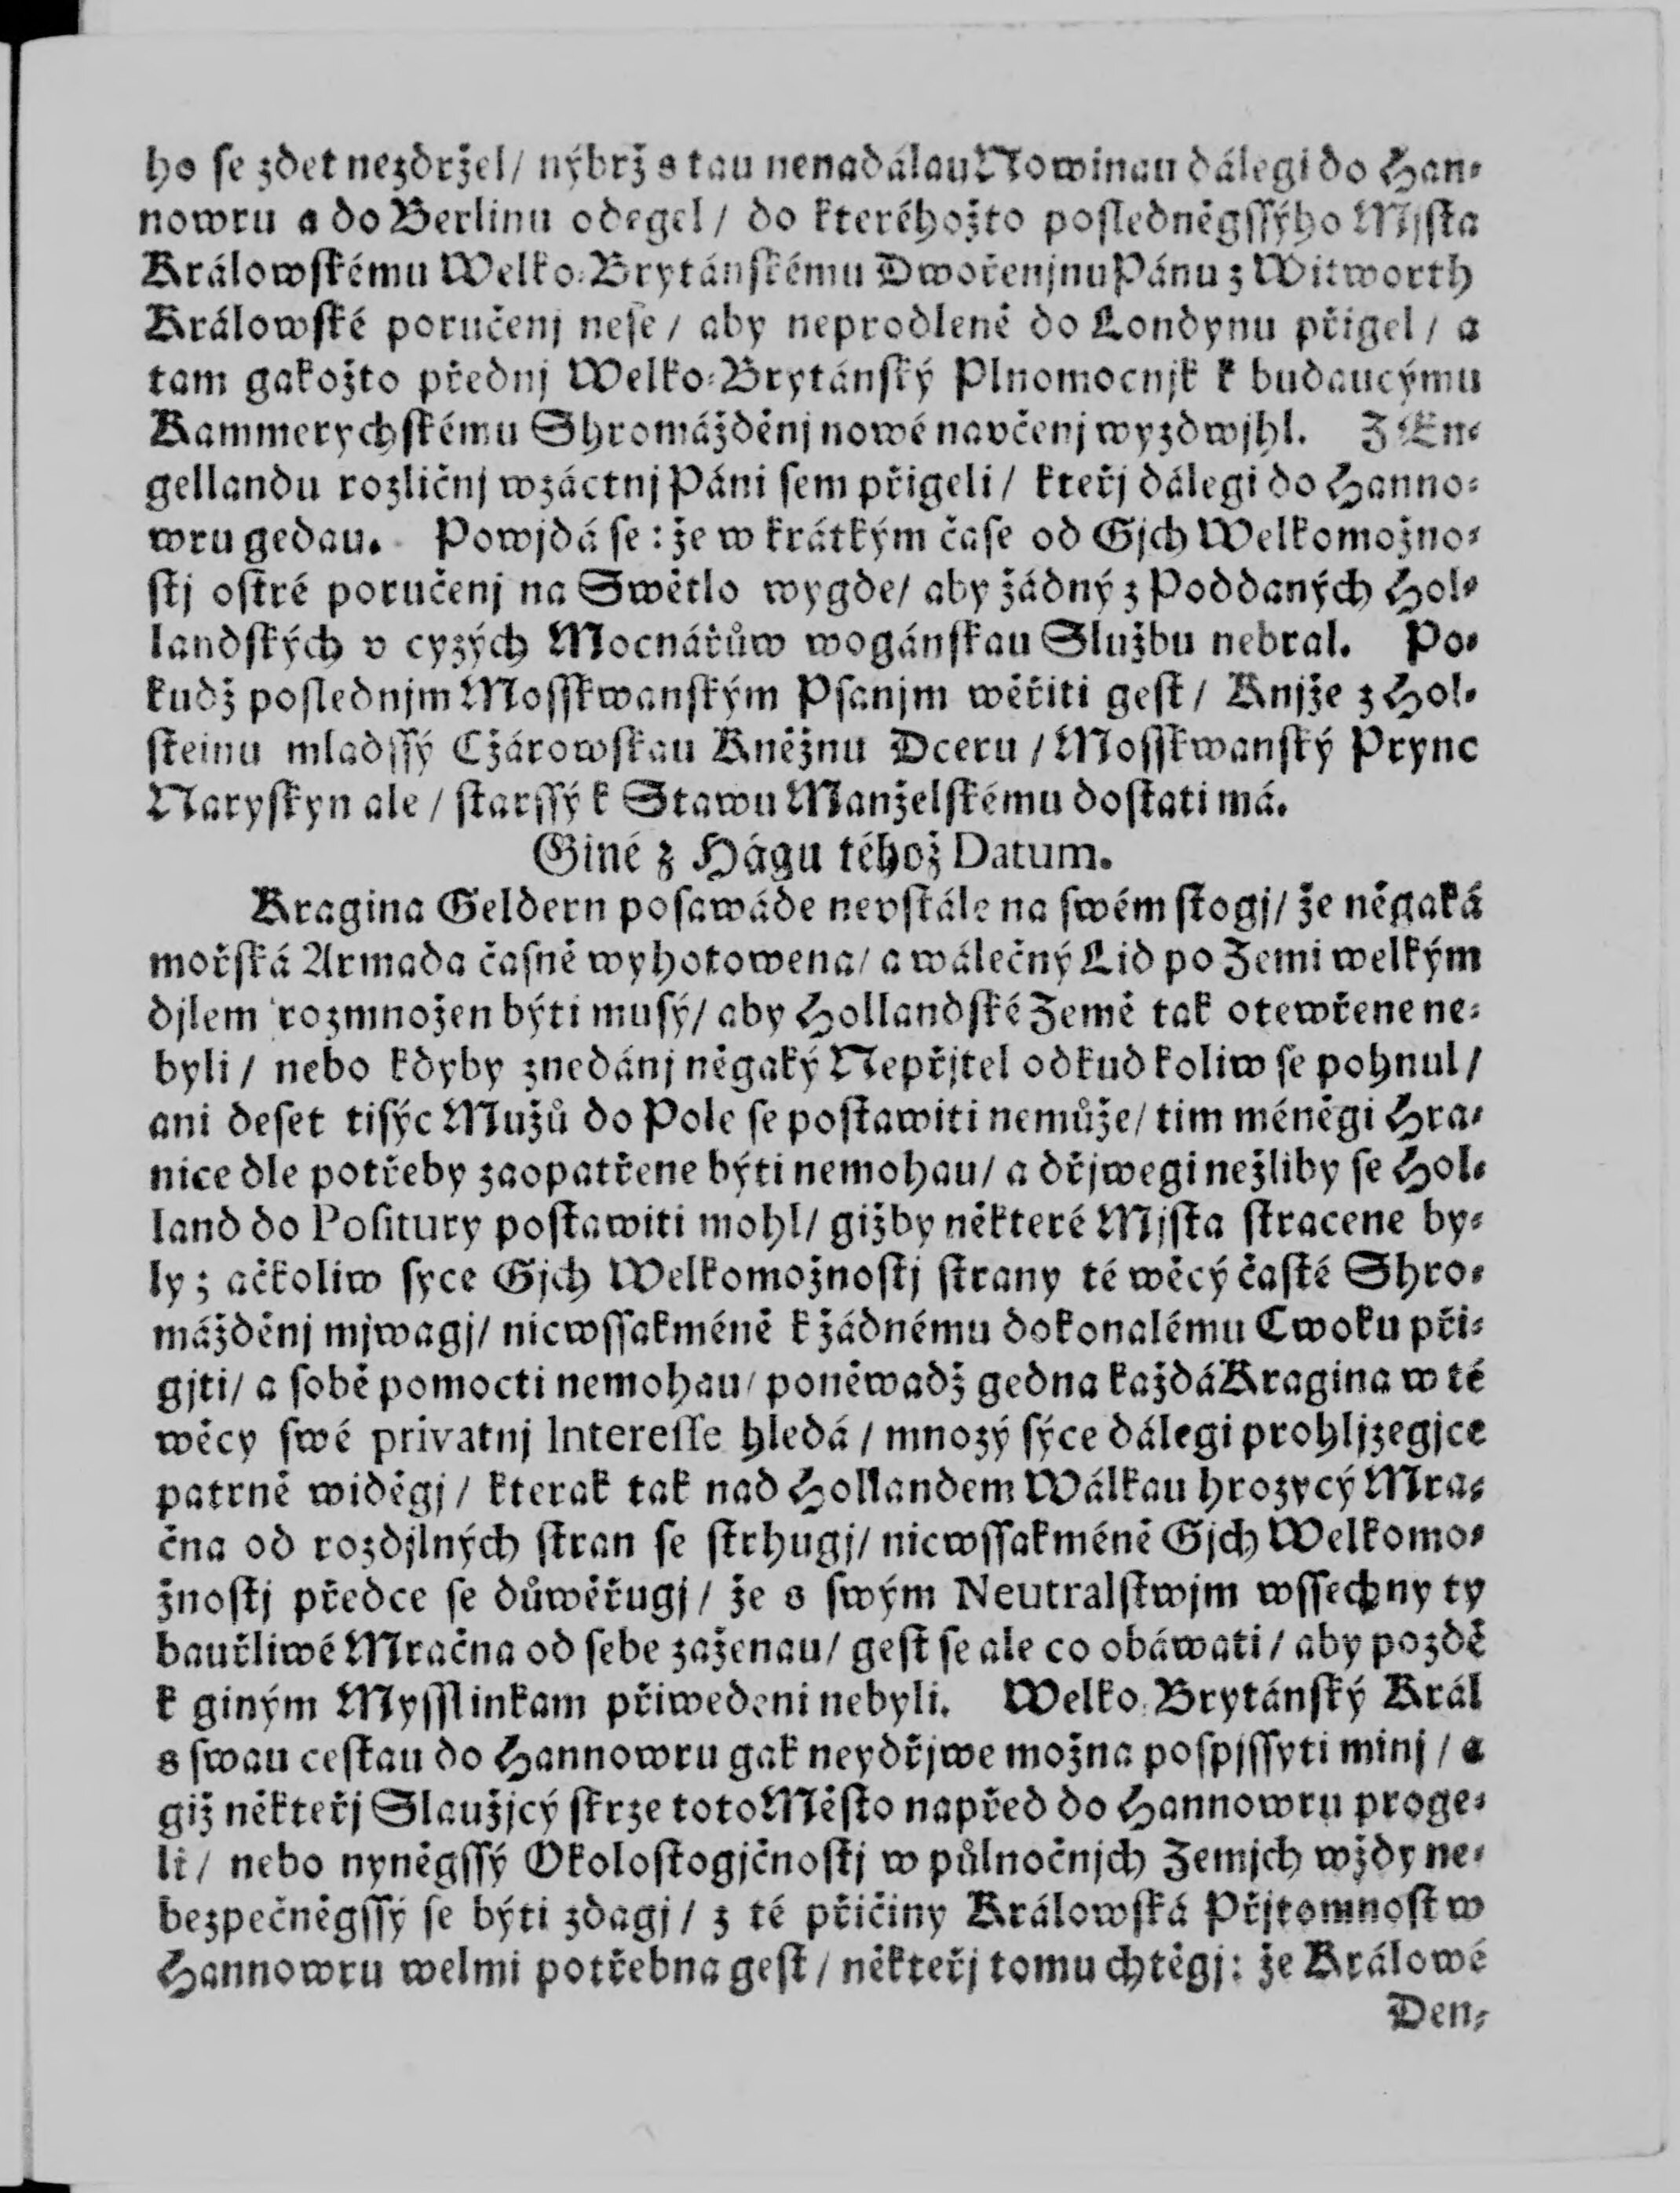 ho se zdet nezdržel / nýbrž s tau nenadálau Nowinau dálegi do Han-
nowru a do Berlinu odegel / do kteréhožto poſledněgſſýho Mjſta
Králowſkému Welko-Brytánſkému Dwořenjnu Pánu z Witworth
Králowſké poručenj neſe / aby neprodleně do Londynu přigel / a
tam gakožto přednj Welko-Brytánſký Plnomocnjk k budaucýmu
Kammerychſkému Shromážděnj nowé navčenj wyzdwjhl. Z En-
gellandu rozličnj wzáctnj Páni ſem přigeli / kteřj dálegi do Hanno-
wru gedau. Powjdá ſe : že w krátkým čaſe od Gjch Welkomožno-
ſtj oſtré poručenj na Swětlo wygde / aby žádný z Poddaných Hol-
landſkých v cyzých Mocnářůw wogánſkau Službu nebral. Po-
kudž poſlednjm Moſſkwanſkým Pſanjm wěřiti geſt / Knjže z Hol-
ſteinu mladſſý Cžárowſkau Kněžnu Dceru / Moſſkwanſký Prync
Naryſkyn ale / ſtarſſý k Stawu Manželſkému doſtati má.
Giné z Hágu téhož Datum.
Kragina Geldern poſawáde nevſtále na ſwém ſtogj / že něgaká
mořſká Armada čaſně wyhotowena / a wálečný Lid po Zemi welkým
djlem rozmnožen býti muſý / aby Hollandſké Země tak otewřene ne-
byli / nebo kdyby znedánj něgaký Nepřjtel odkud koliw ſe pohnul /
ani deſet tiſýc Mužů do Pole ſe poſtawiti nemůže / tim méněgi Hra-
nice dle potřeby zaopatřene býti nemohau / a dřjwegi nežliby ſe Hol-
land do Poſitury poſtawiti mohl / gižby některé Mjſta ſtracene by-
ly ; ačkoliw ſyce Gjch Welkomožnoſtj ſtrany té wěcý čaſté Shro-
mážděnj mjwagj / nicwſſakméně k žádnému dokonalému Cwoku při-
gjti / a ſobě pomocti nemohau / poněwadž gedna každá Kragina w té
wěcy ſwé privatnj Intereſſe hledá / mnozý ſýce dálegi prohljzegjce
patrně widěgj / kterak tak nad Hollandem Wálkau hrozycý Mra-
čna od rozdjlných ſtran ſe ſtrhugj / nicwſſakméně Gjch Welkomo-
žnoſtj předce ſe důwěřugj / že s ſwým Neutralſtwjm wſſechny ty
bauřliwé Mračna od ſebe zaženau / geſt ſe ale co obáwati / aby pozdě
k giným Myſſlinkam přiwedeni nebyli. Welko-Brytánſký Král
s ſwau ceſtau do Hannowru gak neydřjwe možna poſpjſſyti minj / a
giž někteřj Slaužjcý ſkrze toto Měſto napřed do Hannowru proge-
li / nebo nyněgſſý Okoloſtogjčnoſtj w půlnočnjch Zemjch wždy ne-
bezpečněgſſý ſe býti zdagj / z té přičiny Králowſká Přjtomnoſt w
Hannowru welmi potřebna geſt / někteřj tomu chtěgj : že Králowé
Den-